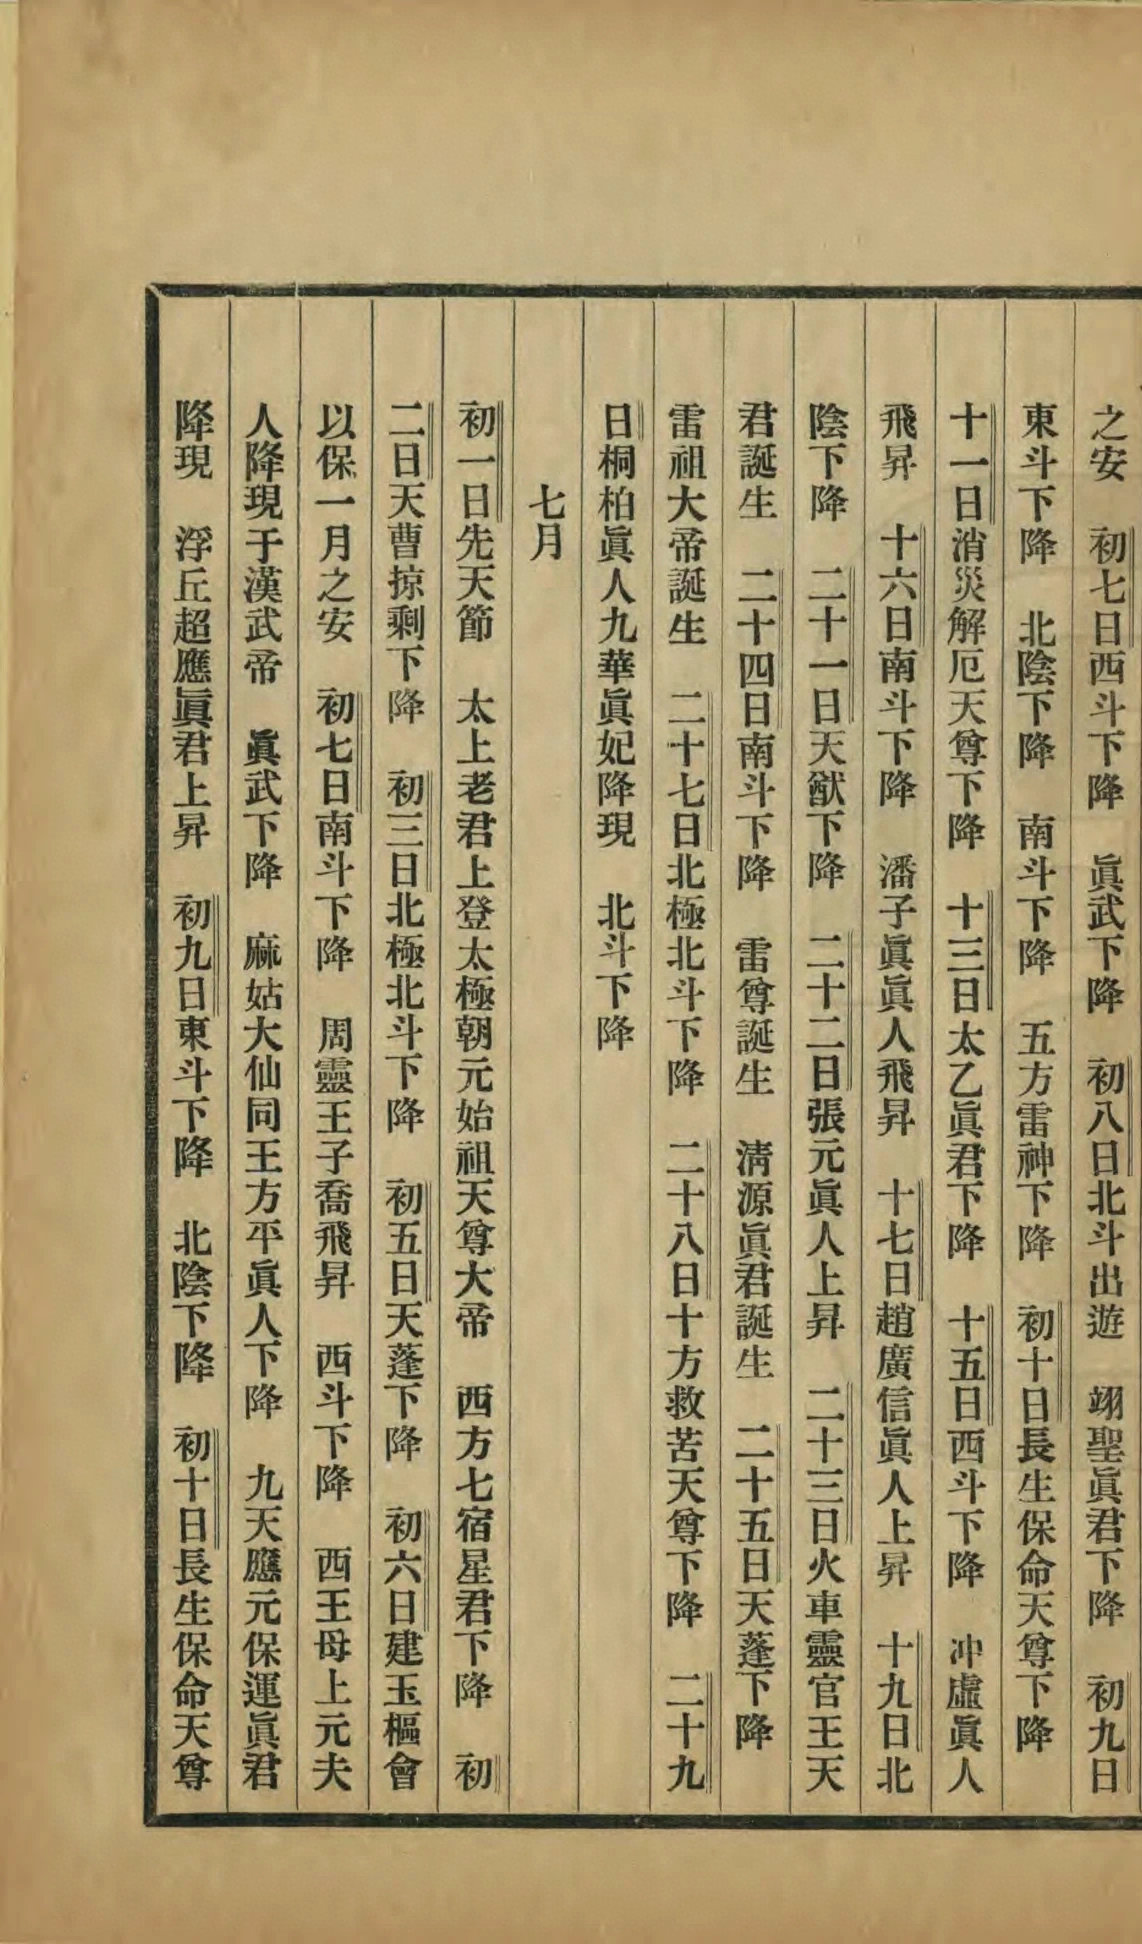 之安　初七日西斗下降　眞武下降　初八日北斗出遊　翊聖眞君下降　初九日
東斗下降　北陰下降　南斗下降　五方雷神下降　初十日長生保命天尊下降
十一日消災解厄天尊下降　十三日太乙眞君下降　十五日西斗下降　冲虛眞人
飛昇　十六日南斗下降　潘子眞眞人飛昇　十七日趙廣信眞人上昇　十九日北
陰下降　二十一日天猷下降　二十二日張元眞人上昇　二十三日火車靈官王天
君誕生　二十四日南斗下降　雷尊誕生　淸源眞君誕生　二十五日天蓬下降
雷祖大帝誕生　二十七日北極北斗下降　二十八日十方救苦天尊下降　二十九
日桐柏眞人九華眞妃降現　北斗下降
七月
初一日先天節　太上老君上登太極朝元始祖天尊大帝　西方七宿星君下降　初
二日天曹掠剩下降　初三日北極北斗下降　初五日天蓬下降　初六日建玉樞會
以保一月之安　初七日南斗下降　周靈王子喬飛昇　西斗下降　西王母上元夫
人降現于漢武帝　眞武下降　麻姑大仙同王方平眞人下降　九天應元保運眞君
降現　浮丘超應眞君上昇　初九日東斗下降　北陰下降　初十日長生保命天尊